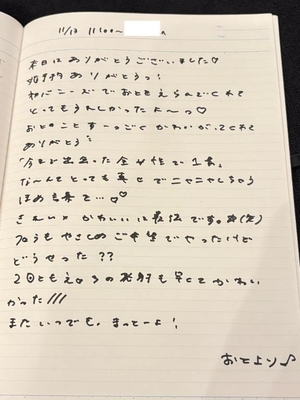 11/13 11:00~
本日はありがとうございました♡
婚約ありがとうっ!
初ニーズでおともえらんでくれて
とってもうれしかったよ〜っ♡
おとのことすーっごくかわいがってくれて
ありがとう
「今まで出会った全女性で1番」
な〜んてとっても真に ニヤニヤしちゃう
ほめ言葉で…♡♡
きれい×かわいいは最強です。(笑)
プロうもやさしめご奉仕でやったけど
どうせった??
2回ともえの発射も早くてかわい
かった///
またいつでも、まっとーよ!
おとより♪